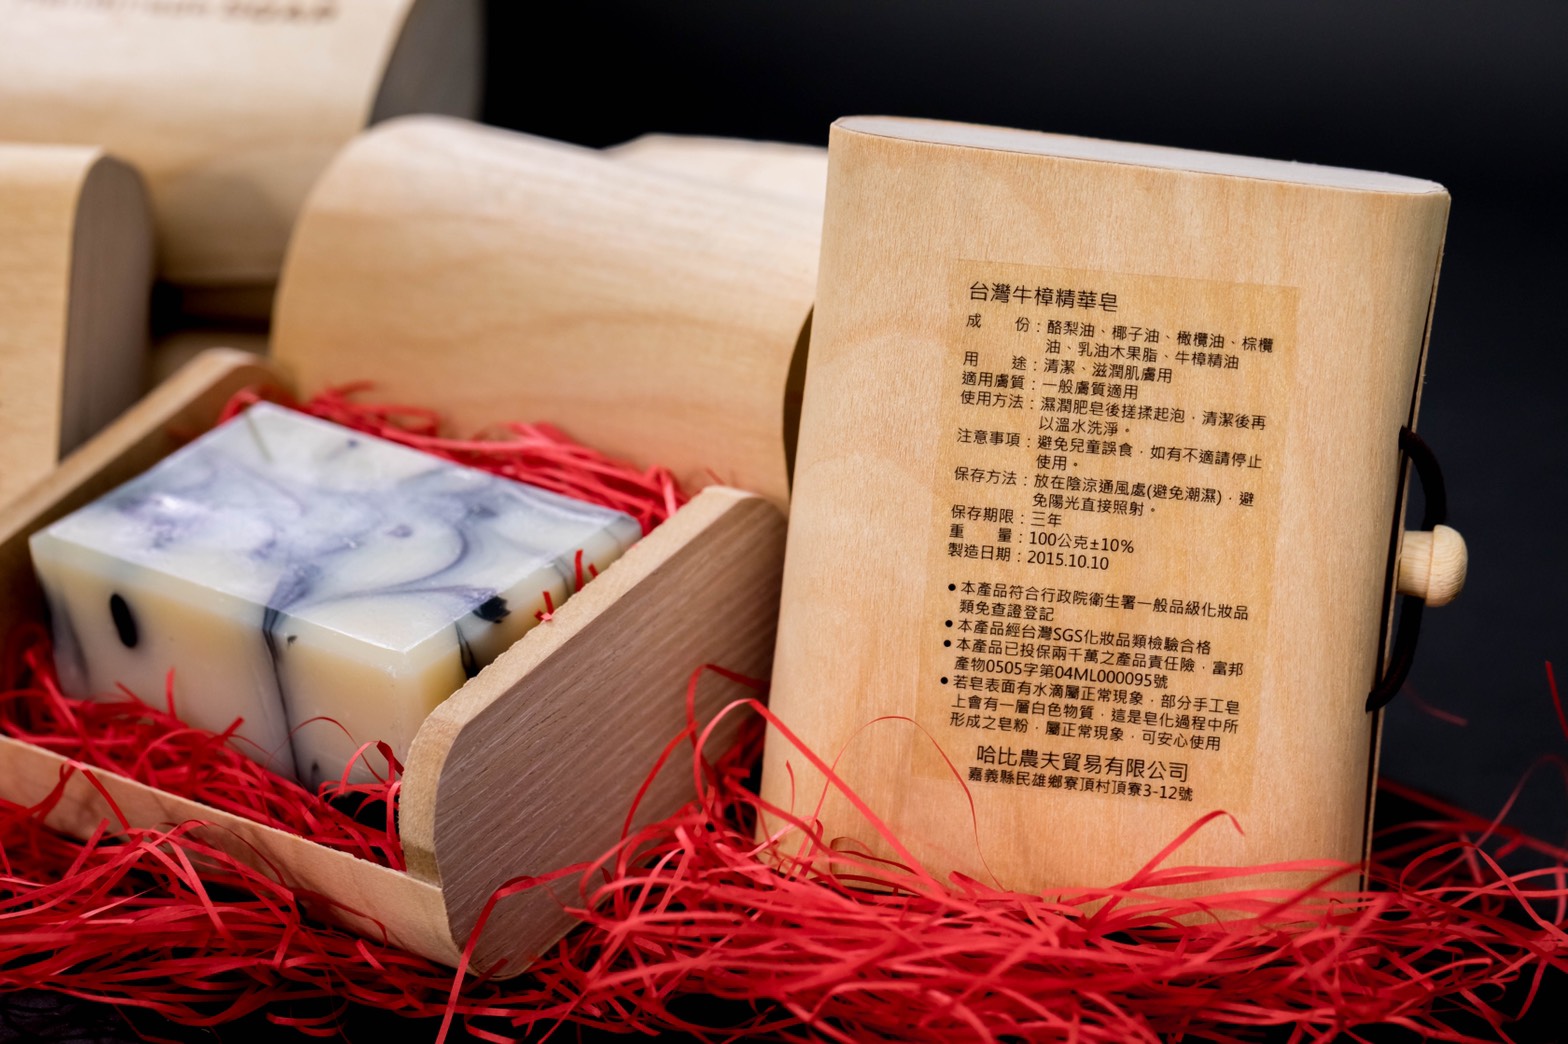 台灣牛樟精華皂
成　　份：酪梨油、椰子油、橄欖油、棕櫚
油、乳油木果脂、牛樟精油
用　　途：清潔、滋潤肌膚用
適用膚質：一般膚質適用
使用方法：濕潤肥皂後搓揉起泡，清潔後再
以溫水洗淨。
注意事項：避免兒童誤食，如有不適請停止
使用。
保存方法：放在陰涼通風處(避免潮濕)，避
免陽光直接照射。
保存期限：三年
重　　量：100公克±10%
製造日期：2015.10.10
●本產品符合行政院衛生署一般品級化妝品
類免查證登記
●本產品經台灣SGS化妝品類檢驗合格
●本產品已投保兩千萬之產品責任險，富邦
產物0505字第04ML000095號
●若皂表面有水滴屬正常現象，部分手工皂
上會有一層白色物質，這是皂化過程中所
形成之皂粉，屬正常現象，可安心使用
哈比農夫貿易有限公司
嘉義縣民雄鄉寮頂村頂寮3-12號